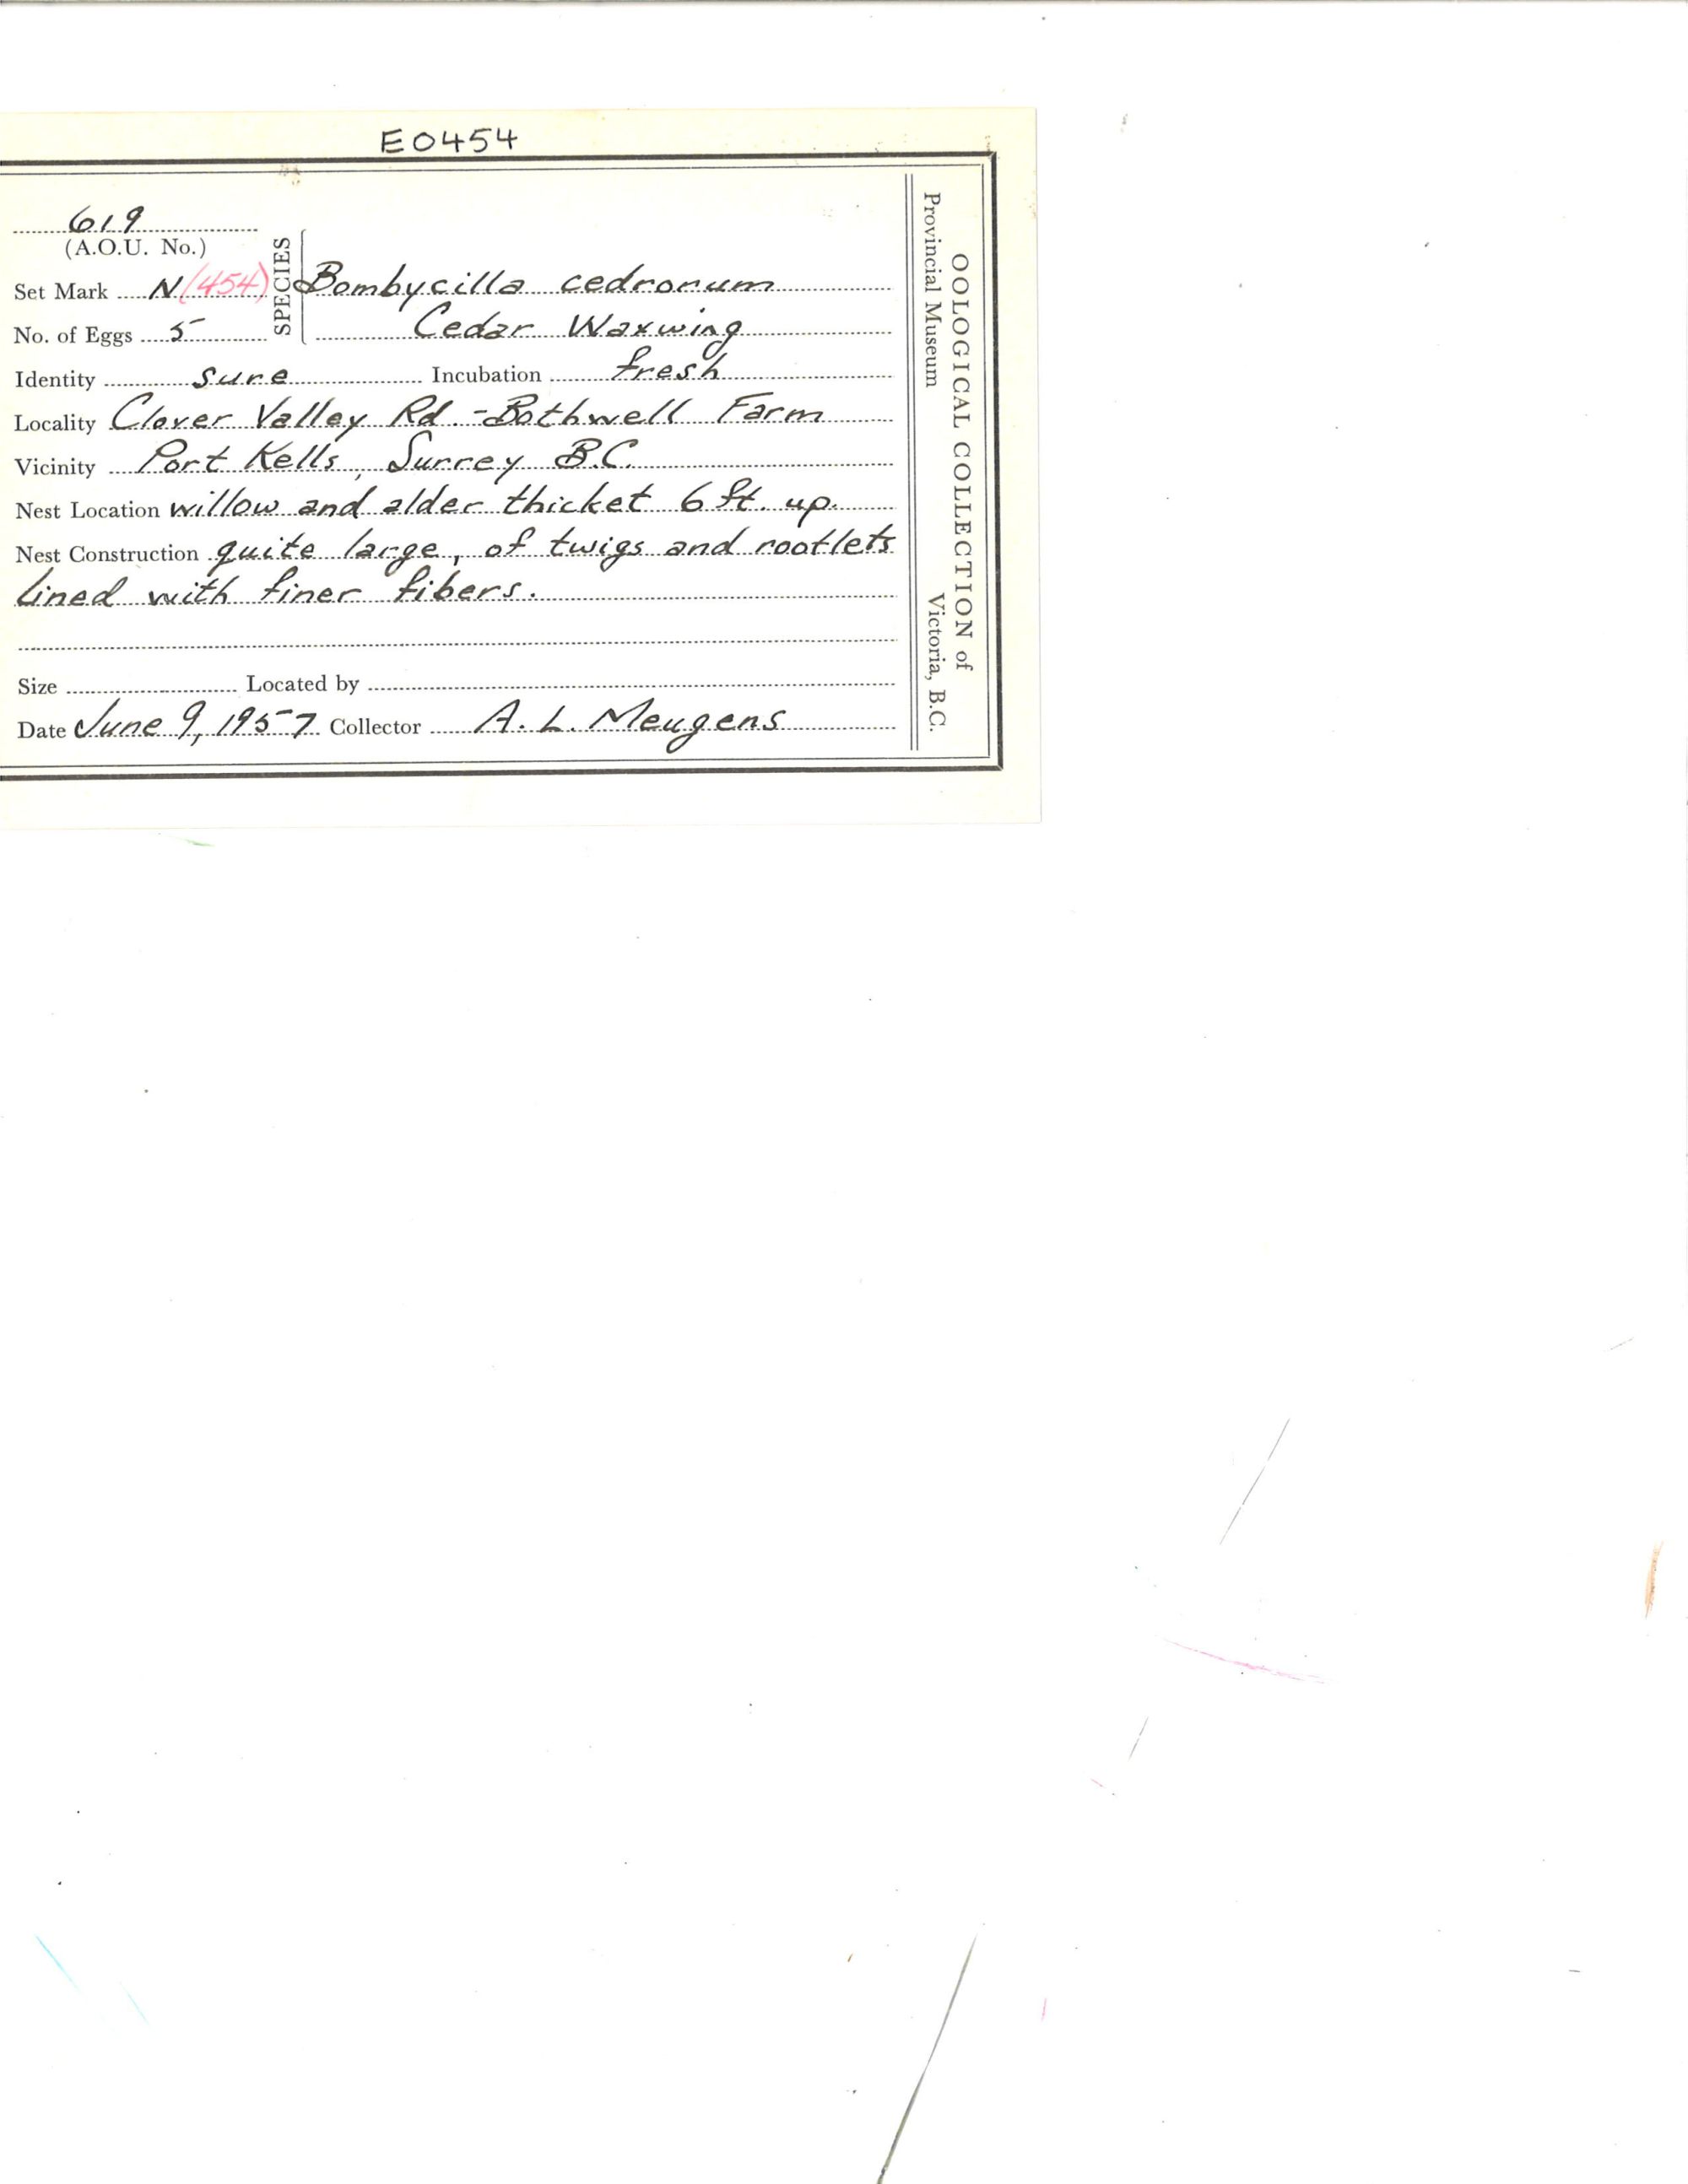 E0454
619
(A.O.U. No.)
Set Mark N (454)
No. of Eggs 5
SPECIES
Bombycilla cedronum
Cedar Waxwing
Identity sure Incubation fresh
Locality Clover Valley Rd. - Bothwell Farm
Vicinity Port Kells, Surrey B.C.
Nest Location willow and alder thicket 6 ft. up.
Nest Construction quite large, of twigs and rootlets
lined with finer fibers.
Size Located by
Date June 9, 1957 Collector A. L. Meugens
OOLOGICAL COLLECTION of
Provincial Museum Victoria, B.C.